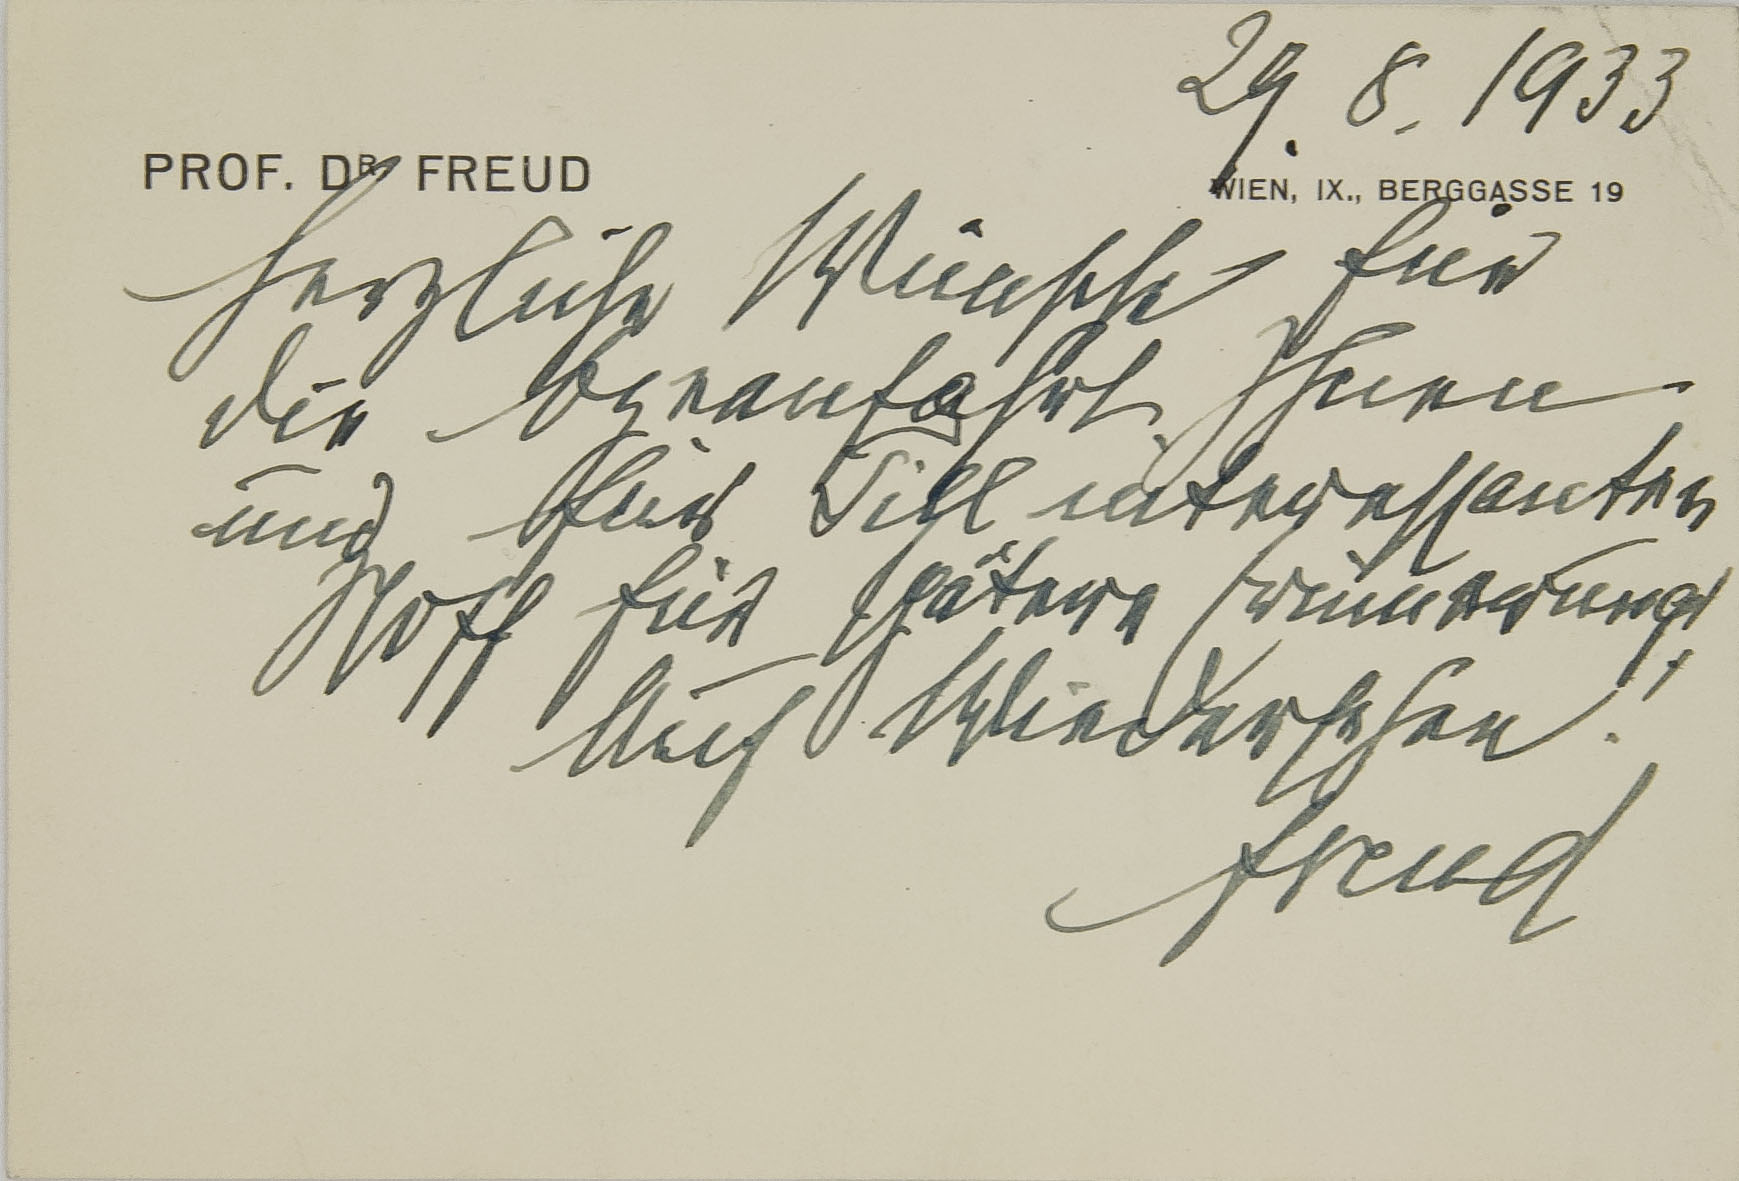 29. 8. 1933
PROF. DR FREUD
WIEN, IX., BERGGASSE 19
Herzliche Wünsche für
die Ozeanfahrt Ihnen
und für Till interessanten
Stoff für spätere Erinnerung!
Auf Wiedersehen!
Freud